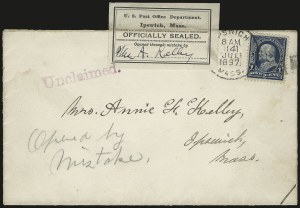 U. S. Post Office Department.
Ipswich, Mass.
OFFICIALLY SEALED.
Opened through mistake by
Mrs A. Kelley
IPSWICH
8 AM
JUL
1897
MASS.
Unclaimed.
Mrs. Annie F. Kelley,
Opened by
Ipswich,
Mistake.
Mass.